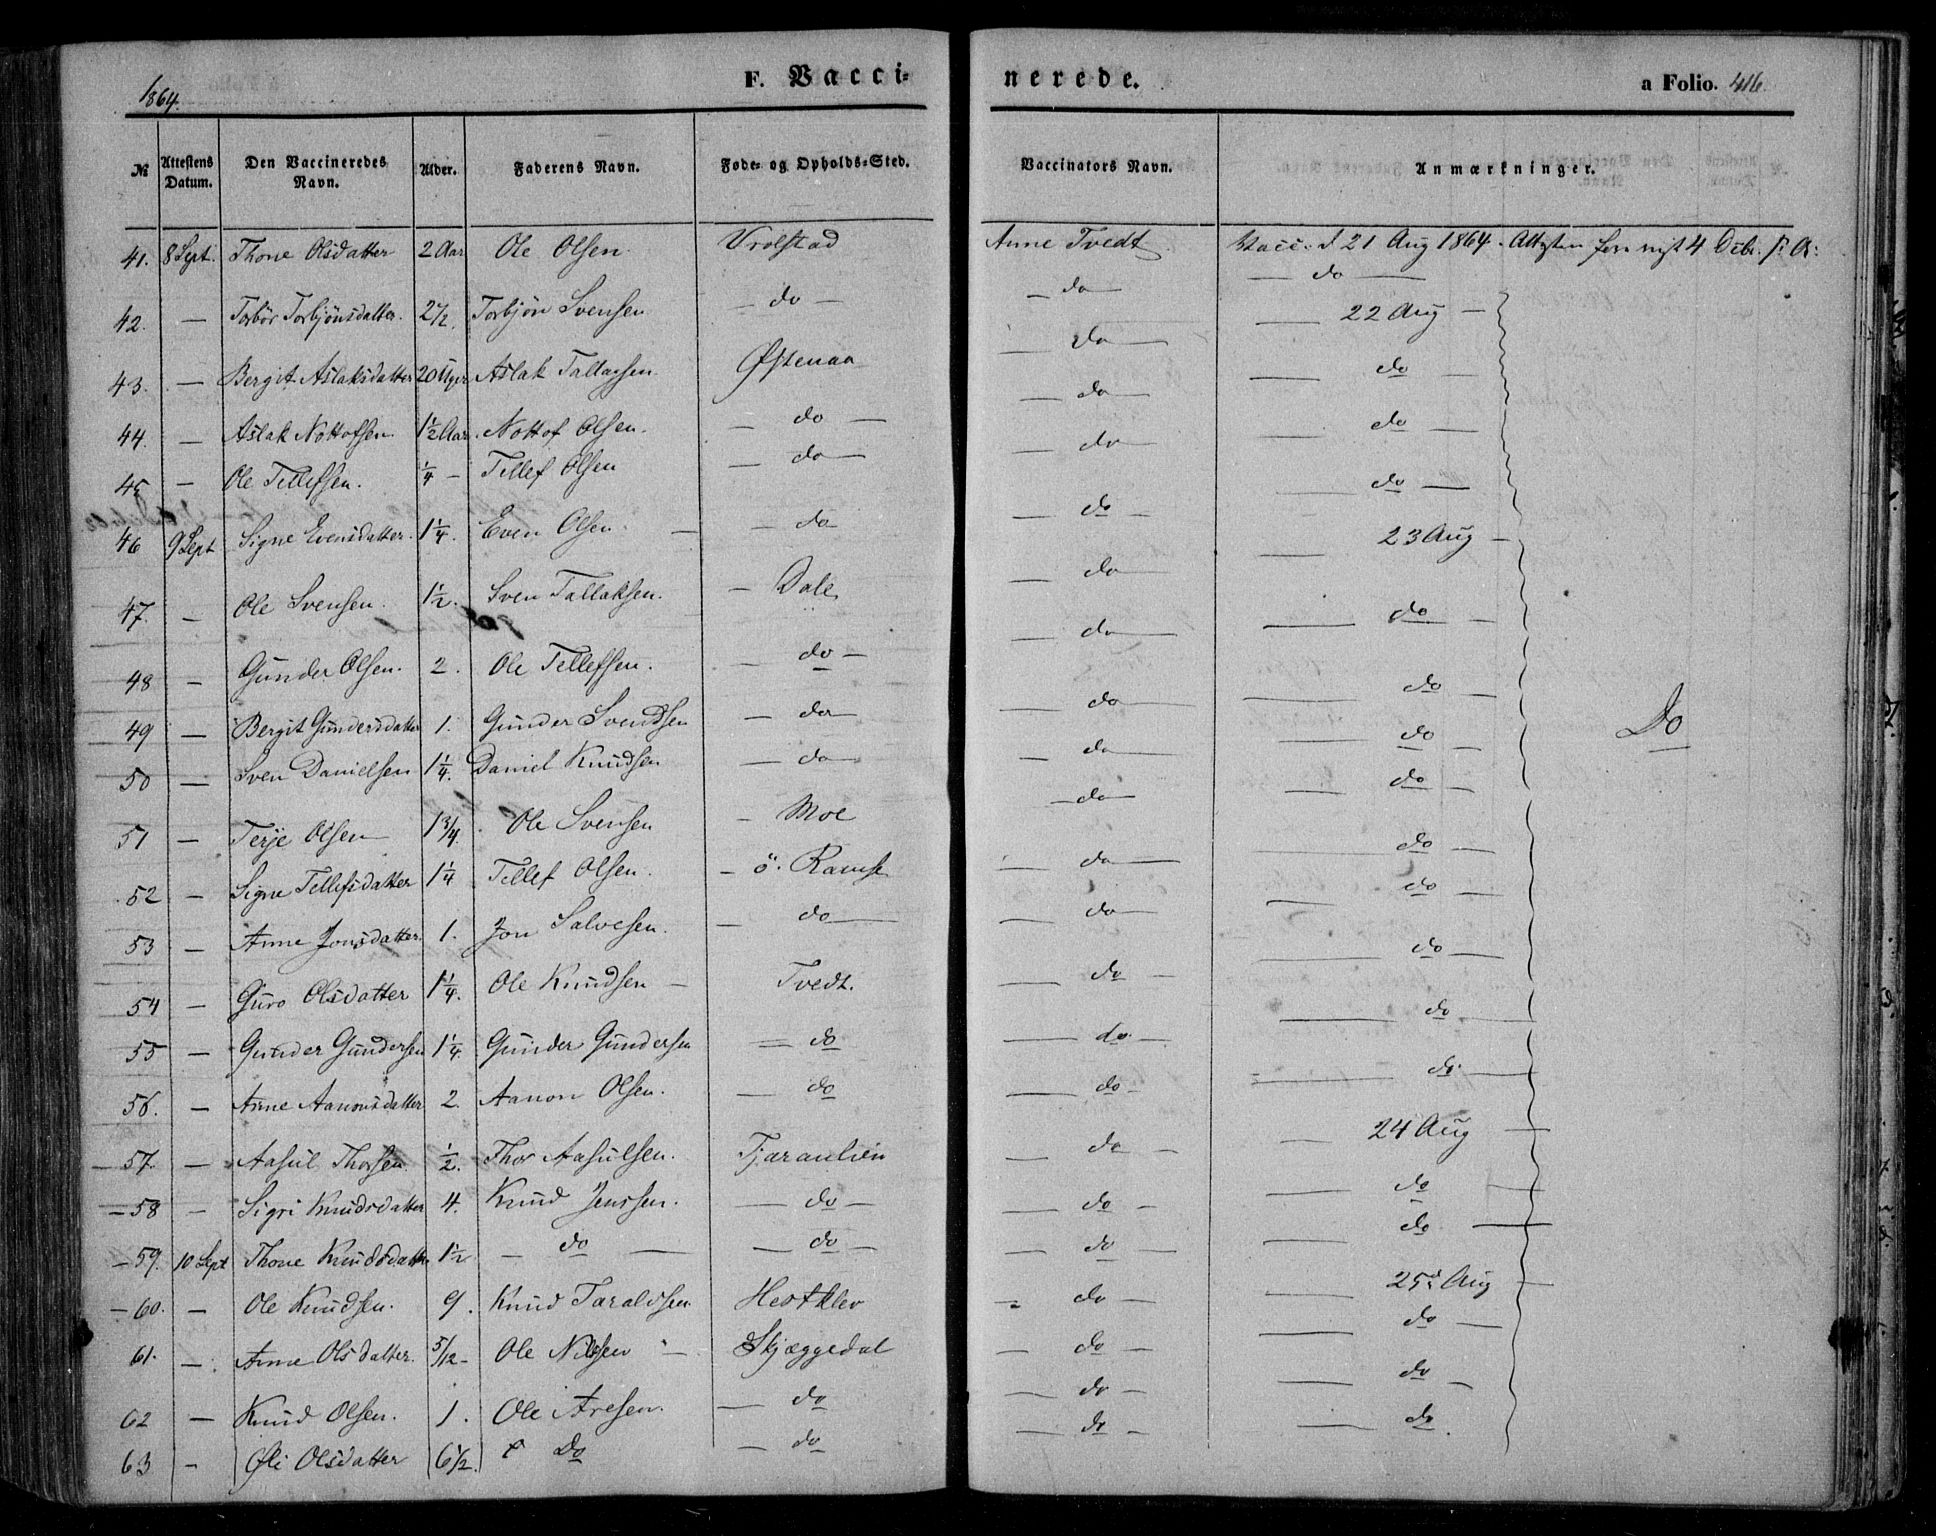 1864.
F. Vacci-
nerede.
a Folio. 416.
№ | Attestens Datum. | Den Vaccineredes Navn. | Alder. | Faderens Navn. | Føde- og Opholds-Sted. | Vaccinators Navn. | Anmærkninger.
41. 8 Sept. Thone Olsdatter 2 Aar Ole Olsen. Vrolstad Anne Tvedt Vacc: d 21 Aug 1864. 4 Debr.
42. — Torbør Torbjönsdatter. 2½. Torbjön Svensen — do — — do — — do —
43. — Bergit Aslaksdatter 20 Uger Aslak Tallaksen. Østenaa — do — — 22 Aug —
44. — Aslak Nottofsen 1½ Aar. Nottof Olsen. — do — — do — — do —
45 — Ole Tellefsen. ¼ — Tellef Olsen — do — — do — — do —
46 9 Sept Signe Evensdatter. 1¼. Even Olsen. — — do — — do — — do —
47. — Ole Svensen. 1½. Sven Tallaksen. — Dale — do — — 23 Aug —
48 — Gunder Olsen. 2. Ole Tellefsen. — do — — do — — do —
49 — Bergit Gundersdatter 1. Gunder Svendsen — do — — do — — do — Do
50 — Sven Danielsen 1¼. Daniel Knudsen — do — — do — — do —
51 — Terje Olsen 1¾. Ole Svensen — Moe — do — — do —
52 — Signe Tellefsdatter 1¼ Tellef Olsen. — ö. Ramse — do — — do —
53 — Anne Jonsdatter 1. Jon Salvesen. — do — — do — — do —
54 — Guro Olsdatter 1¼. Ole Knudsen — Tvedt. — do — — do —
55 — Gunder Gundersen 1¼. Gunder Gundersen — do — do — — do —
56. — Anne Aanonsdatter 2. Aanon Olsen. — do — do — — do —
57. — Aasul Thorsen ½. Thor Aasulsen. Tjæraulien — do — — 24 Aug —
58 — Sigri Knudsdatter 4. Knud Jenssen. — do — — do — — do —
59. 10 Sept Thone Knudsdatter 1½ — do — — do — — do — — do —
60. — Ole Knudsen. 9. Knud Taraldsen. Hestklev — do — 25d Aug —
61. — Anne Olsdatter. 5/12 — Ole Nilssen — Skjæggedal — do — — do —
62 — Knud Olsen. 1. Ole Aresen. — do — do — — do —
63 — Øli Olsdatter 6½. Do — do — do — — do